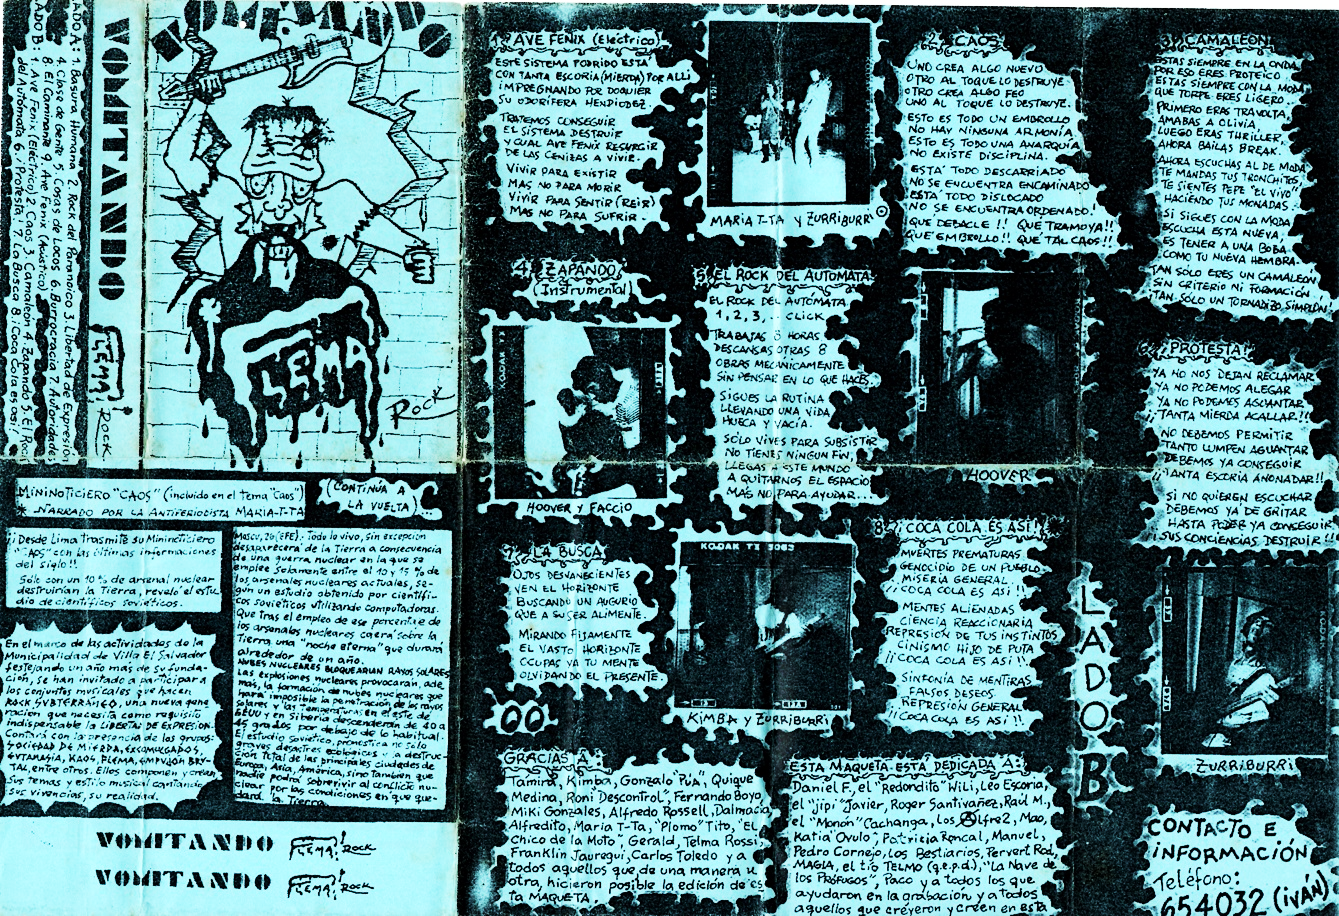 LADO A: 1. Basura Humana 2. Rock del Pantanarco 3. Libertad de Expresión
4. Clase de Gente 5. Cosas de Locos 6. Burrocracia 7. Autoridades
8. El Caminante 9. Ave Fenix (Acústico)
LADO B: 1. Ave Fenix (Eléctrico) 2. Caos 3. Camaneon 4. Zapando 5. El Rock
del Autómata 6. ¡Protesta! 7. La Busca 8. ¡Coca Cola es así!
VOMITANDO
FLEMA! ROCK
VOMITANDO
FLEMA
ROCK
MININOTICIERO "CAOS" (incluido en el tema "Caos")
* NARRADO POR LA ANTIPERIODISTA MARIA-T-TA
(CONTINÚA A
LA VUELTA)
¡¡Desde Lima trasmite su Mininoticiero
"CAOS" con las últimas informaciones
del siglo!!
Sólo con un 10% de arsenal nuclear
destruirían la Tierra, reveló el estu-
dio de científicos soviéticos.
En el marco de las actividades de la
Municipalidad de Villa El Salvador
festejando un año más de su funda-
ción, se han invitado a participar a
los conjuntos musicales que hacen
ROCK SUBTERRÁNEO, una nueva gene
ración que necesita como requisito
indispensable la LIBERTAD DE EXPRESIÓN.
Contará con la presencia de los grupos:
SOCIEDAD DE MIERDA, EXCOMULGADOS,
EUTANASIA, KAOS, FLEMA, EMPUJÓN BRU-
TAL, entre otros. Ellos componen y crean
sus temas y estilo musical cantando
sus vivencias, su realidad.
Moscú, 26 (EFE). Todo lo vivo, sin excepción
desaparecerá de la Tierra a consecuencia
de una guerra nuclear en la que se
emplee solamente entre el 10 y 15 % de
los arsenales nucleares actuales, se-
gún un estudio obtenido por científi-
cos soviéticos utilizando computadoras.
Que tras el empleo de ese porcentaje de
los arsenales nucleares caerá sobre la
Tierra una "noche eterna" que durará
alrededor de un año.
NUBES NUCLEARES BLOQUEARIAN RAYOS SOLARES
Las explosiones nucleares provocarán, ade
más, la formación de nubes nucleares que
hará imposible la penetración de los rayos
solares y las temperaturas en el este de
EEUU y en Siberia descenderán de 40 a
45 grados por debajo de lo habitual.
El estudio soviético, pronostica no sólo
graves desastres ecológicos y a destruc-
ción total de las principales ciudades de
Europa, Asia, América, sino también que
nadie podrá sobrevivir al conflicto nu-
clear por las condiciones en que que-
dará la Tierra.
VOMITANDO FLEMA! ROCK
VOMITANDO FLEMA! ROCK
1. AVE FENIX (Eléctrico)
ESTE SISTEMA PODRIDO ESTÁ
CON TANTA ESCORIA (MIERDA) POR ALLI
IMPREGNANDO POR DOQUIER
SU ODORÍFERA HENDIDEZ.
TRATEMOS CONSEGUIR
EL SISTEMA DESTRUIR
Y CUAL AVE FENIX RESURGIR
DE LAS CENIZAS A VIVIR.
VIVIR PARA EXISTIR
MAS NO PARA MORIR
VIVIR PARA SENTIR (REIR)
MAS NO PARA SUFRIR.
MARIA T-TA Y ZURRIBURRI
2. CAOS
UNO CREA ALGO NUEVO
OTRO AL TOQUE LO DESTRUYE.
OTRO CREA ALGO FEO
UNO AL TOQUE LO DESTRUYE.
ESTO ES TODO UN EMBROLLO
NO HAY NINGUNA ARMONÍA
ESTO ES TODO UNA ANARQUÍA
NO EXISTE DISCIPLINA.
ESTÁ TODO DESCARRIADO
NO SE ENCUENTRA ENCAMINADO
ESTÁ TODO DISLOCADO
NO SE ENCUENTRA ORDENADO.
QUE DEBACLE!! QUE TRAMOYA!!
QUE EMBROLLO!! QUE TAL CAOS!!
3. CAMALEON
ESTAS SIEMPRE EN LA ONDA
POR ESO ERES PROTEICO
ESTAS SIEMPRE CON LA MODA
QUE TORPE ERES LIGERO.
PRIMERO ERAS TRAVOLTA,
AMABAS A OLIVIA,
LUEGO ERAS THRILLER,
AHORA BAILAS BREAK.
AHORA ESCUCHAS AL DE MODA
TE MANDAS TUS TRONCHITOS,
TE SIENTES PEPE "EL VIVO"
HACIENDO TUS MONADAS.
SI SIGUES CON LA MODA
ESCUCHA ESTA NUEVA,
ES TENER A UNA BOBA
COMO TU NUEVA HEMBRA.
TAN SOLO ERES UN CAMALEON
SIN CRITERIO NI FORMACIÓN
TAN SOLO UN TORNADIZO SIMPLON!
4. ZAPANDO
(Instrumental)
HOOVER Y FACCIO
5. EL ROCK DEL AUTOMATA
EL ROCK DEL AUTÓMATA
1, 2, 3, ... CLICK
TRABAJAS 8 HORAS
DESCANSAS OTRAS 8
OBRAS MECANICAMENTE
SIN PENSAR EN LO QUE HACES.
SIGUES LA RUTINA
LLEVANDO UNA VIDA
HUECA Y VACÍA.
SOLO VIVES PARA SUBSISTIR
NO TIENES NINGUN FIN,
LLEGAS A ESTE MUNDO
A QUITARNOS EL ESPACIO
MAS NO PARA AYUDAR...
HOOVER
6. ¡PROTESTA!
YA NO NOS DEJAN RECLAMAR
YA NO PODEMOS ALEGAR
YA NO PODEMOS AGUANTAR
¡¡TANTA MIERDA ACALLAR!!
NO DEBEMOS PERMITIR
TANTO LUMPEN AGUANTAR
DEBEMOS YA CONSEGUIR
¡¡TANTA ESCORIA ANONADAR!!
SI NO QUIEREN ESCUCHAR
DEBEMOS YA DE GRITAR
HASTA PODER YA CONSEGUIR
¡¡SUS CONCIENCIAS DESTRUIR!!
7. LA BUSCA
OJOS DESVANECIENTES
VEN EL HORIZONTE
BUSCANDO UN AUGURIO
QUE A SU SER ALIMENTE.
MIRANDO FIJAMENTE
EL VASTO HORIZONTE
OCUPAS YA TU MENTE
OLVIDANDO EL PRESENTE.
KODAK TX 5063
KIMBA Y ZURRIBURRI
8. ¡¡COCA COLA ES ASÍ!!
MUERTES PREMATURAS
GENOCIDIO DE UN PUEBLO
MISERIA GENERAL
¡¡COCA COLA ES ASÍ!!
MENTES ALIENADAS
CIENCIA REACCIONARIA
REPRESIÓN DE TUS INSTINTOS
CINISMO HIJO DE PUTA
¡¡COCA COLA ES ASÍ!!
SINFONÍA DE MENTIRAS
FALSOS DESEOS
REPRESIÓN GENERAL
¡¡COCA COLA ES ASÍ!!
LADO B
ZURRIBURRI
GRACIAS A:
Tamira, Kimba, Gonzalo "Púa", Quique
Medina, Roni "Descontrol", Fernando Boyo,
Miki Gonzales, Alfredo Rossell, Dalmacia
Alfredito, Maria T-Ta, "Plomo" Tito, "El
Chico de la Moto", Gerald, Telma Rossi,
Franklin Jauregui, Carlos Toledo y a
todos aquellos que de una manera u
otra, hicieron posible la edición de es
ta MAQUETA.
ESTA MAQUETA ESTÁ DEDICADA A:
Daniel F., el "Redondito" Wili, Leo Escoria,
el "Jipi" Javier, Roger Santiváñez, Raúl M.,
el "Monón" Cachanga, los Alfre2, Mao,
Katia "Ovulo", Patricia Roncal, Manuel,
Pedro Cornejo, los Bestiarios, Pervert Rod,
MAGIA, el tío TELMO (q.e.p.d.), "La Nave de
los Prófugos", Paco y a todos los que
ayudaron en la grabación y a todos
aquellos que creyeron y creen en esta
CONTACTO E
INFORMACIÓN:
Teléfono:
654032 (IVÁN)